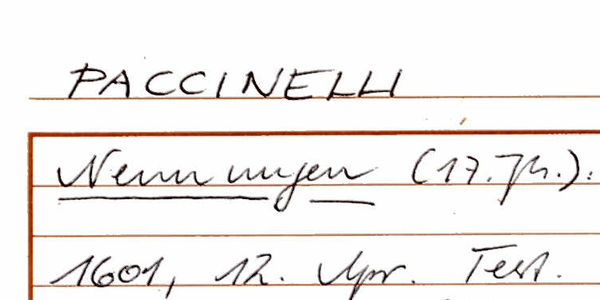 PACCINELLI
Nennungen (17. Jh.):
1601, 12. Apr. Test.